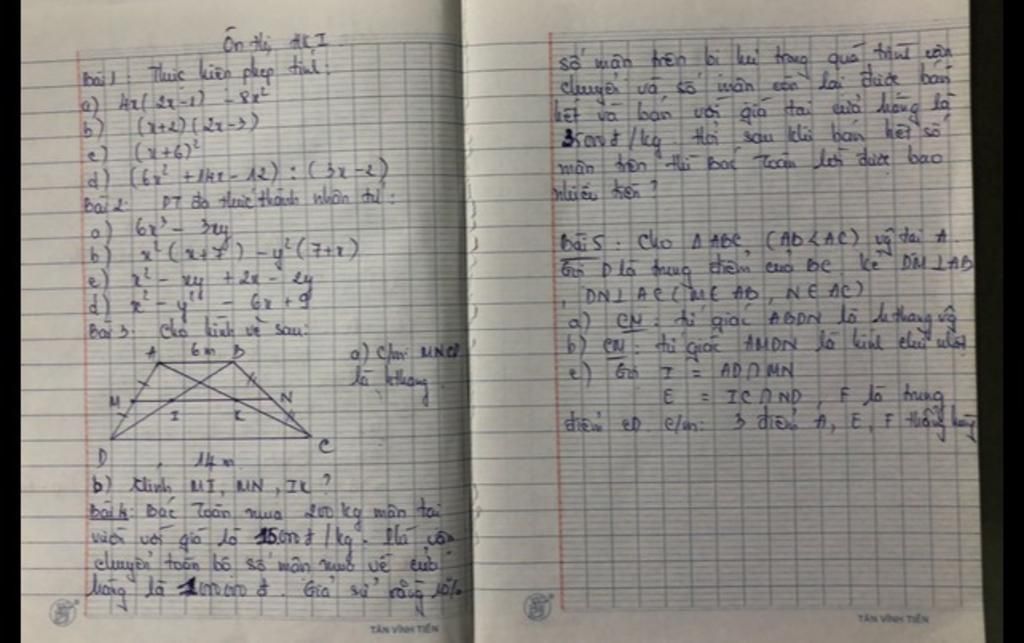 Ôn thi HK I
Bài 1: Thực hiện phép tính:
a) 4x(2x-1) - 8x²
b) (x+2)(2x-3)
c) (x+6)²
d) (6x² + 14x - 12) : (3x-2)
Bài 2: PT đa thức thành nhân tử:
a) 6x³ - 3xy
b) x²(x+7) - y²(7+x)
c) x² - xy + 2x - 2y
d) x² - y² - 6x + 9
Bài 3: Cho hình vẽ sau:
A 6m B
a) C/m: MNCD
là hthang
M I K N
D 14m C
b) Tính MI, MN, IK ?
Bài 4: Bác Toàn mua 200 kg mận tại
vườn với giá là 15000đ/kg. Phí vận
chuyển toàn bộ số mận mua về cửa
hàng là đ. Giả sử rằng 10%
số mận trên bị hư trong quá trình vận
chuyển và số mận còn lại được bán
hết và bán với giá tại cửa hàng là
35000đ/kg thì sau khi bán hết số
mận trên thì bác Toàn lời được bao
nhiêu tiền ?
Bài 5: Cho Δ ABC, (AB<AC) vg tại A.
Gọi D là trung điểm của BC. Kẻ DM⊥AB
, DN⊥AC (M∈AB, N∈AC)
a) CM: tứ giác ABDN là hthang vg
b) CM: tứ giác AMDN là hình chữ nhật
c) Gọi I = AD∩MN
E = IC∩ND, F là trung
điểm CD. C/m: 3 điểm A, E, F thẳng hàng
TÂN VĨNH TIẾN
TÂN VĨNH TIẾN